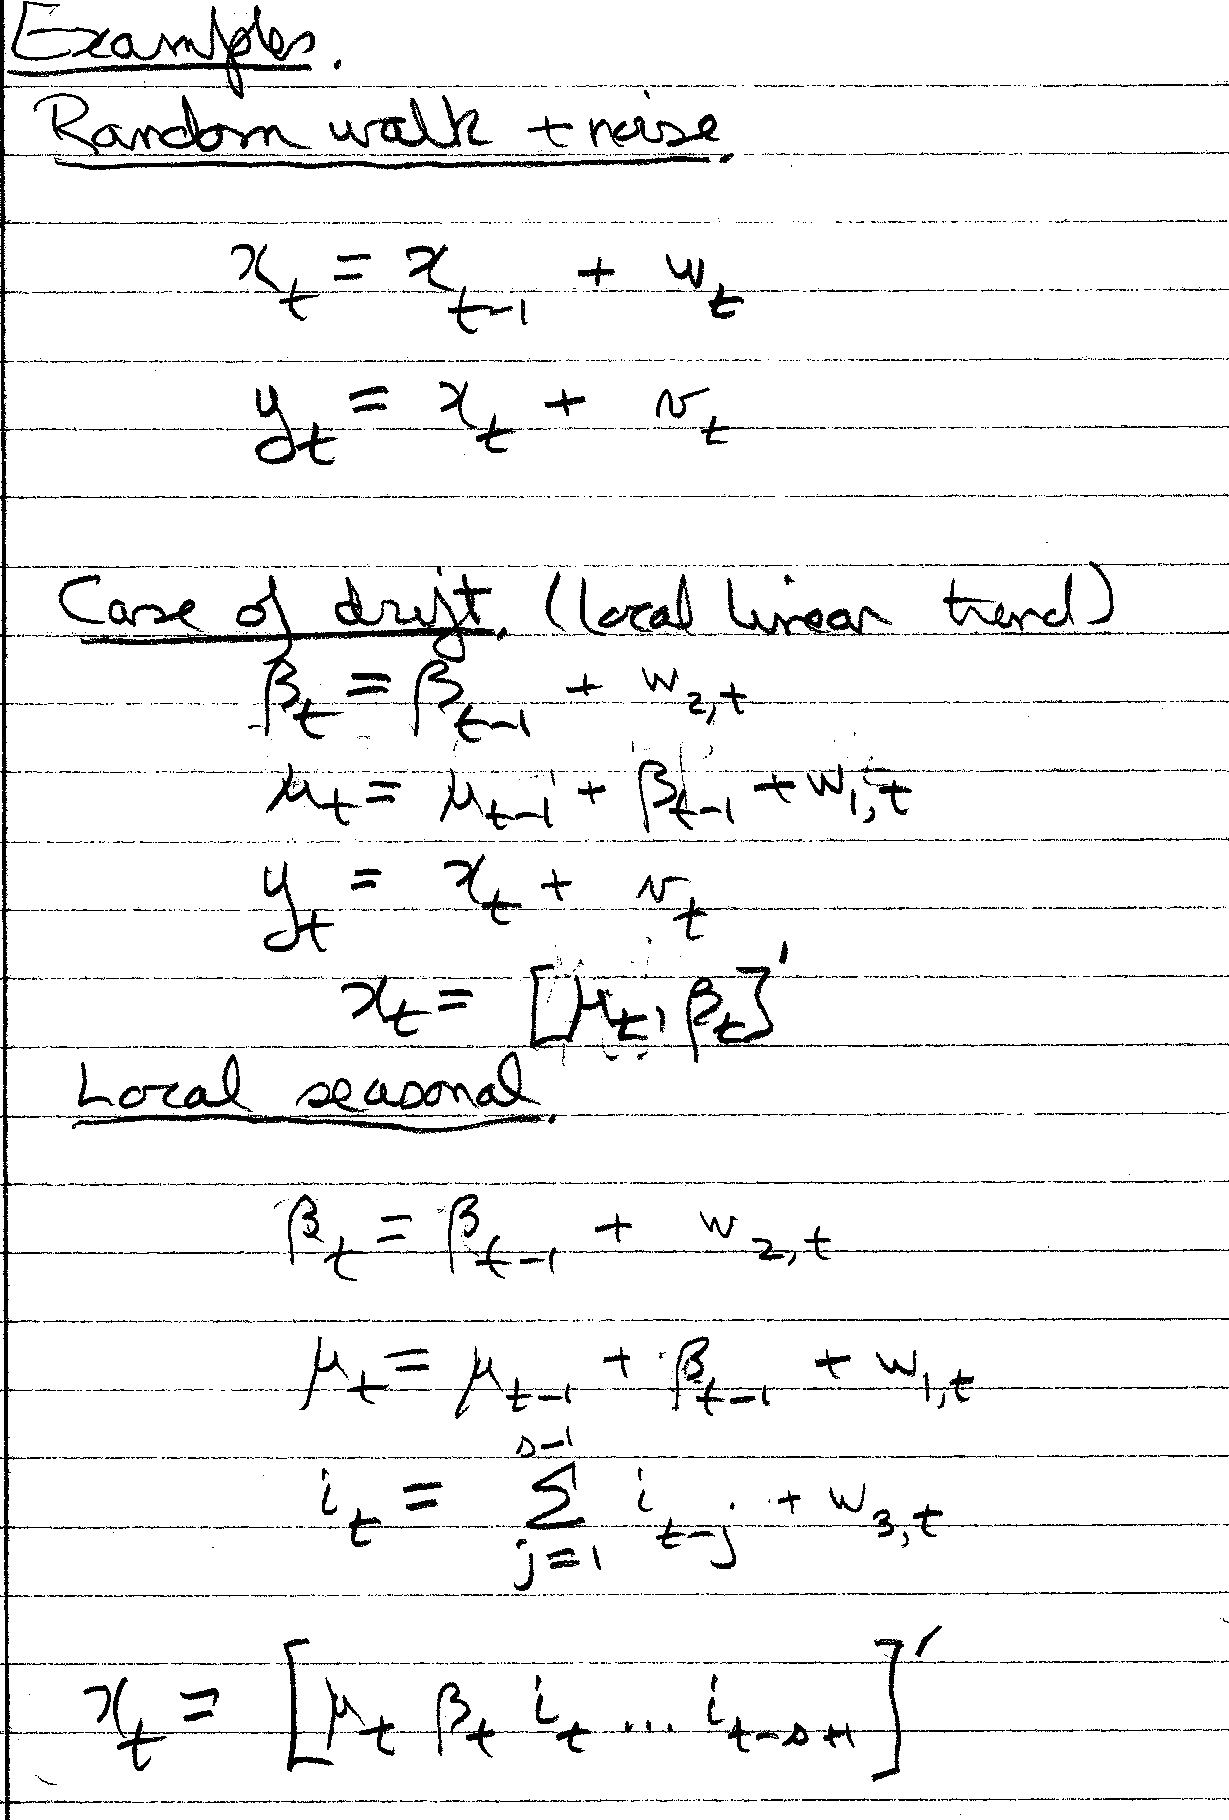 Examples.
Random walk + noise.
x_t = x_{t-1} + w_t
y_t = x_t + v_t
Case of drift. (local linear trend)
β_t = β_{t-1} + w_{2,t}
μ_t = μ_{t-1} + β_{t-1} + w_{1,t}
y_t = x_t + v_t
x_t = [μ_t, β_t]'
Local seasonal.
β_t = β_{t-1} + w_{2,t}
μ_t = μ_{t-1} + β_{t-1} + w_{1,t}
i_t = Σ_{j=1}^{s-1} i_{t-j} + w_{3,t}
x_t = [μ_t β_t i_t ... i_{t-s+1}]'